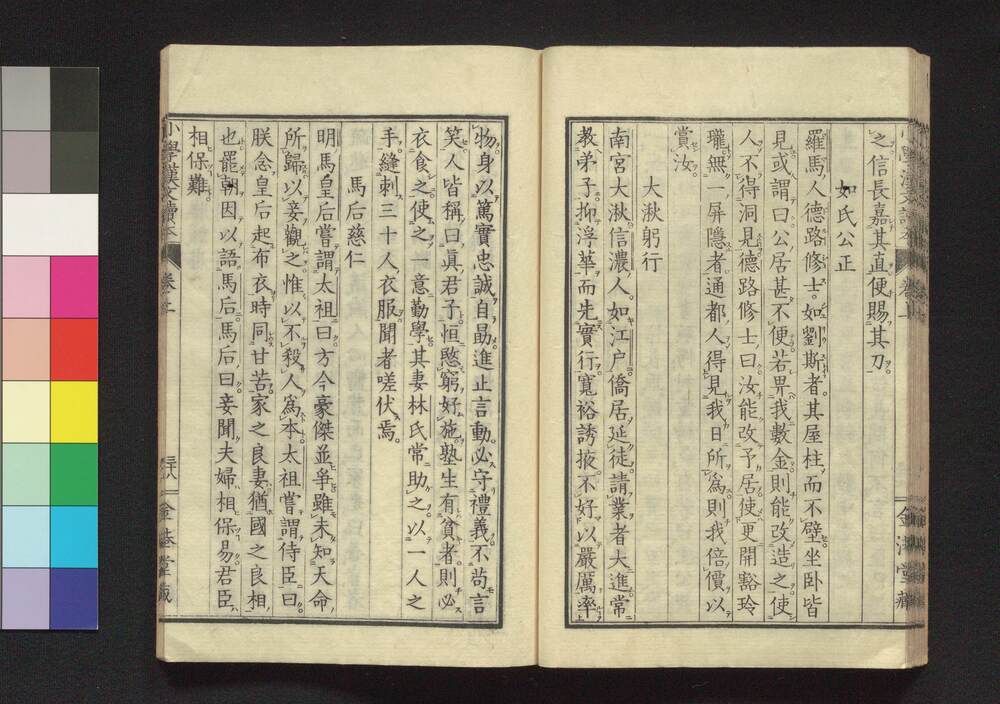 之信長嘉其直便賜其刀
如氏公正
羅馬人德路修士如劉斯者其屋柱而不壁坐臥皆
見或謂曰公居甚不便若畀我數金則能改造之使
人不得洞見德路修士曰汝能改予居使更開豁玲
瓏無一屏隱者通都人得見我日所爲則我倍價以
賞汝
大湫躬行
南宮大湫信濃人如江戶僑居延徒請業者大進常
教弟子抑浮華而先實行寬裕誘掖不好以嚴厲率
物身以篤實忠誠自勗進止言動必守禮義不苟言
笑人皆稱曰眞君子恒愍窮好施塾生有貧者則必
衣食之使之一意勤學其妻林氏常助之以一人之
手縫刺三十人衣服聞者嗟伏焉
馬后慈仁
明馬皇后嘗謂太祖曰方今豪傑並爭雖未知天命
所歸以妾觀之惟以不殺人爲本太祖嘗謂侍臣曰
朕念皇后起布衣時同甘苦家之良妻猶國之良相
也罷朝因以語馬后馬后曰妾聞夫婦相保易君臣
相保難
小學漢文讀本
卷之
金港堂藏